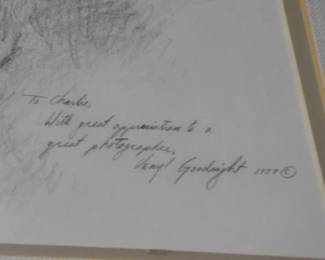 To Charlie,
With great appreciation to a
great photographer,
Veryl Goodnight 1977 ©